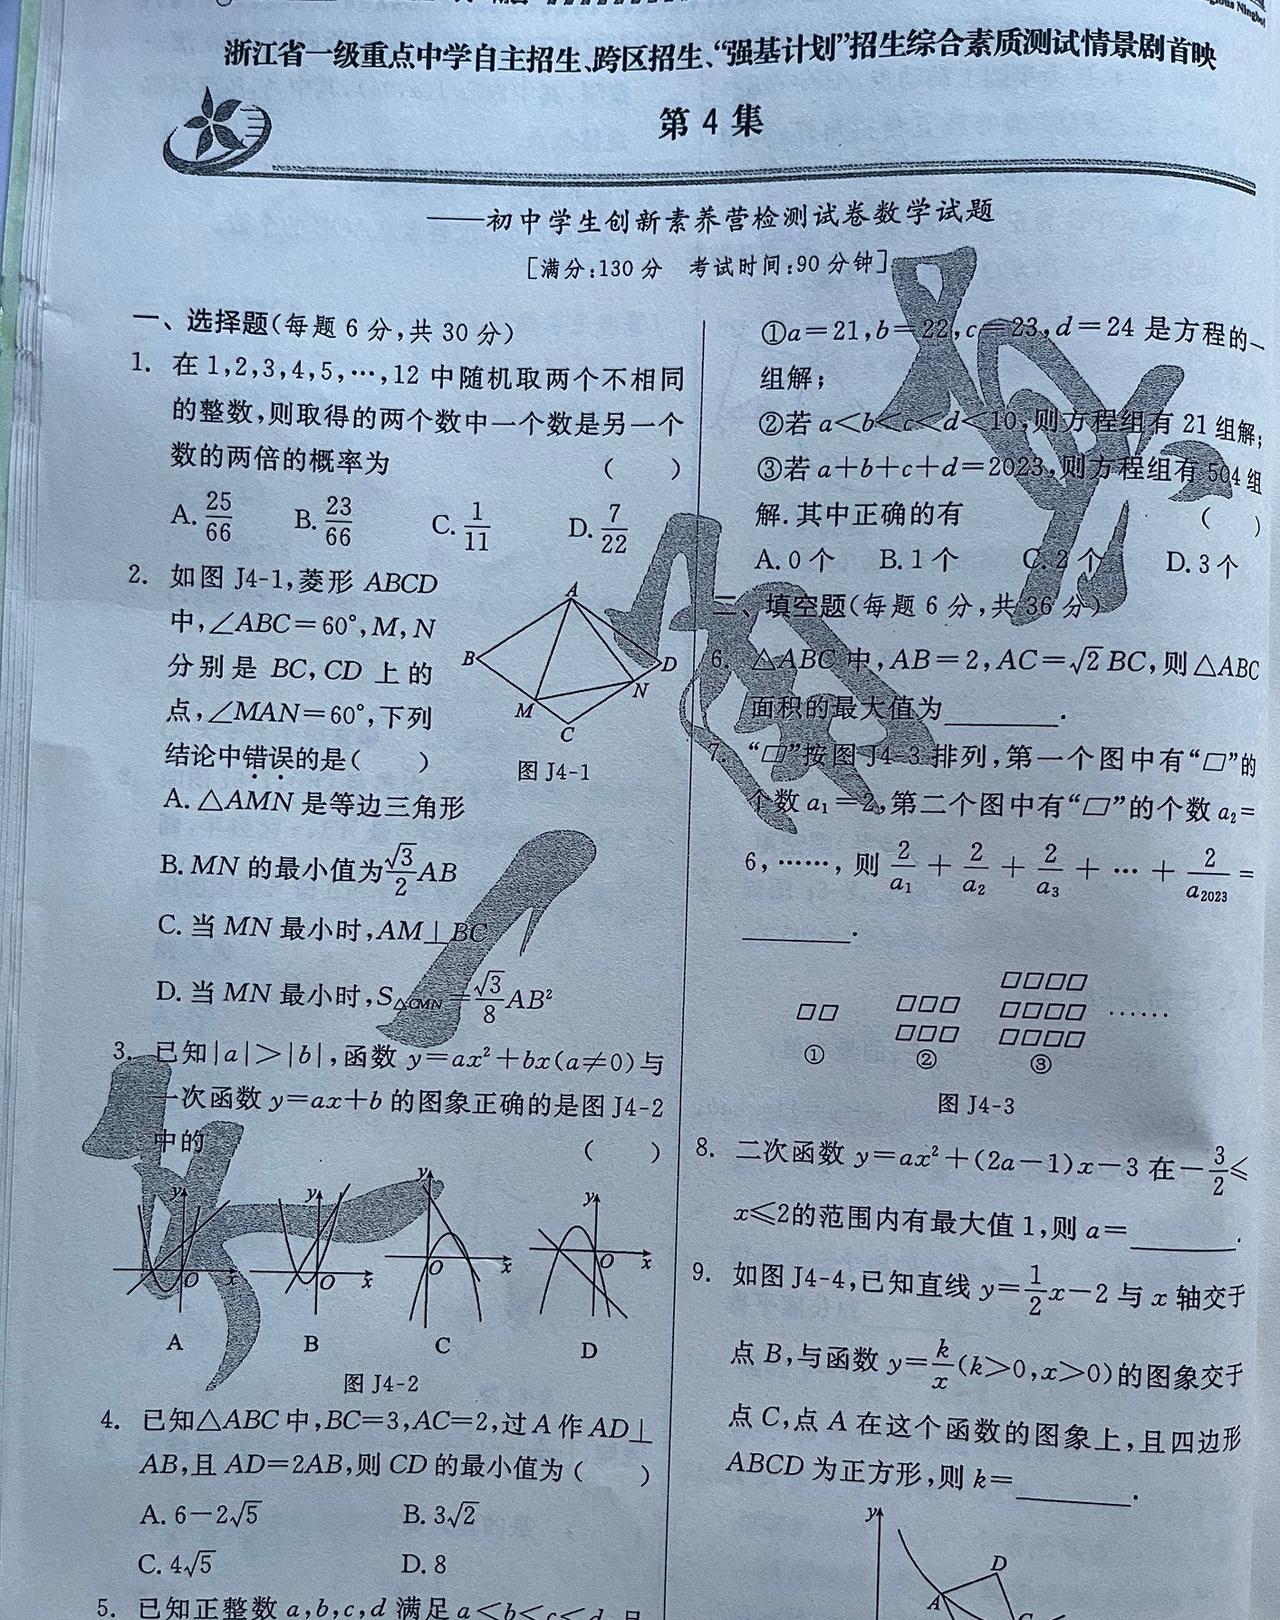 浙江省一级重点中学自主招生、跨区招生、“强基计划”招生综合素质测试情景剧首映
第 4 集
——初中学生创新素养营检测试卷数学试题
[满分:130 分 考试时间:90 分钟]
一、选择题(每题 6 分,共 30 分)
1. 在 1,2,3,4,5,…,12 中随机取两个不相同
的整数,则取得的两个数中一个数是另一个
数的两倍的概率为 ( )
A. 25/66 B. 23/66 C. 1/11 D. 7/22
2. 如图 J4-1,菱形 ABCD
中,∠ABC=60°,M,N
分别是 BC,CD 上的
点,∠MAN=60°,下列
结论中错误的是( )
A
B
D
N
M
C
图 J4-1
A. △AMN 是等边三角形
B. MN 的最小值为√3/2 AB
C. 当 MN 最小时,AM⊥BC
D. 当 MN 最小时,S△CMN=√3/8 AB²
3. 已知|a|>|b|,函数 y=ax²+bx(a≠0)与
一次函数 y=ax+b 的图象正确的是图 J4-2
中的 ( )
y y y y
O x O x O x O x
A B C D
图 J4-2
4. 已知△ABC 中,BC=3,AC=2,过 A 作 AD⊥
AB,且 AD=2AB,则 CD 的最小值为( )
A. 6-2√5 B. 3√2
C. 4√5 D. 8
5. 已知正整数 a,b,c,d 满足 a<b<c<d,且
①a=21,b=22,c=23,d=24 是方程的一
组解;
②若 a<b<c<d<10,则方程组有 21 组解;
③若 a+b+c+d=2023,则方程组有 504 组
解.其中正确的有 ( )
A. 0 个 B. 1 个 C. 2 个 D. 3 个
二、填空题(每题 6 分,共 36 分)
6. △ABC 中,AB=2,AC=√2 BC,则△ABC
面积的最大值为________.
7. “▱”按图 J4-3 排列,第一个图中有“▱”的
个数 a₁=2,第二个图中有“▱”的个数 a₂=
6,……,则 2/a₁ + 2/a₂ + 2/a₃ + … + 2/a₂₀₂₃ =
________.
① ② ③ ……
图 J4-3
8. 二次函数 y=ax²+(2a-1)x-3 在-3/2≤
x≤2的范围内有最大值 1,则 a=________.
9. 如图 J4-4,已知直线 y=1/2 x-2 与 x 轴交于
点 B,与函数 y=k/x(k>0,x>0)的图象交于
点 C,点 A 在这个函数的图象上,且四边形
ABCD 为正方形,则 k=________.
y
D
A
C